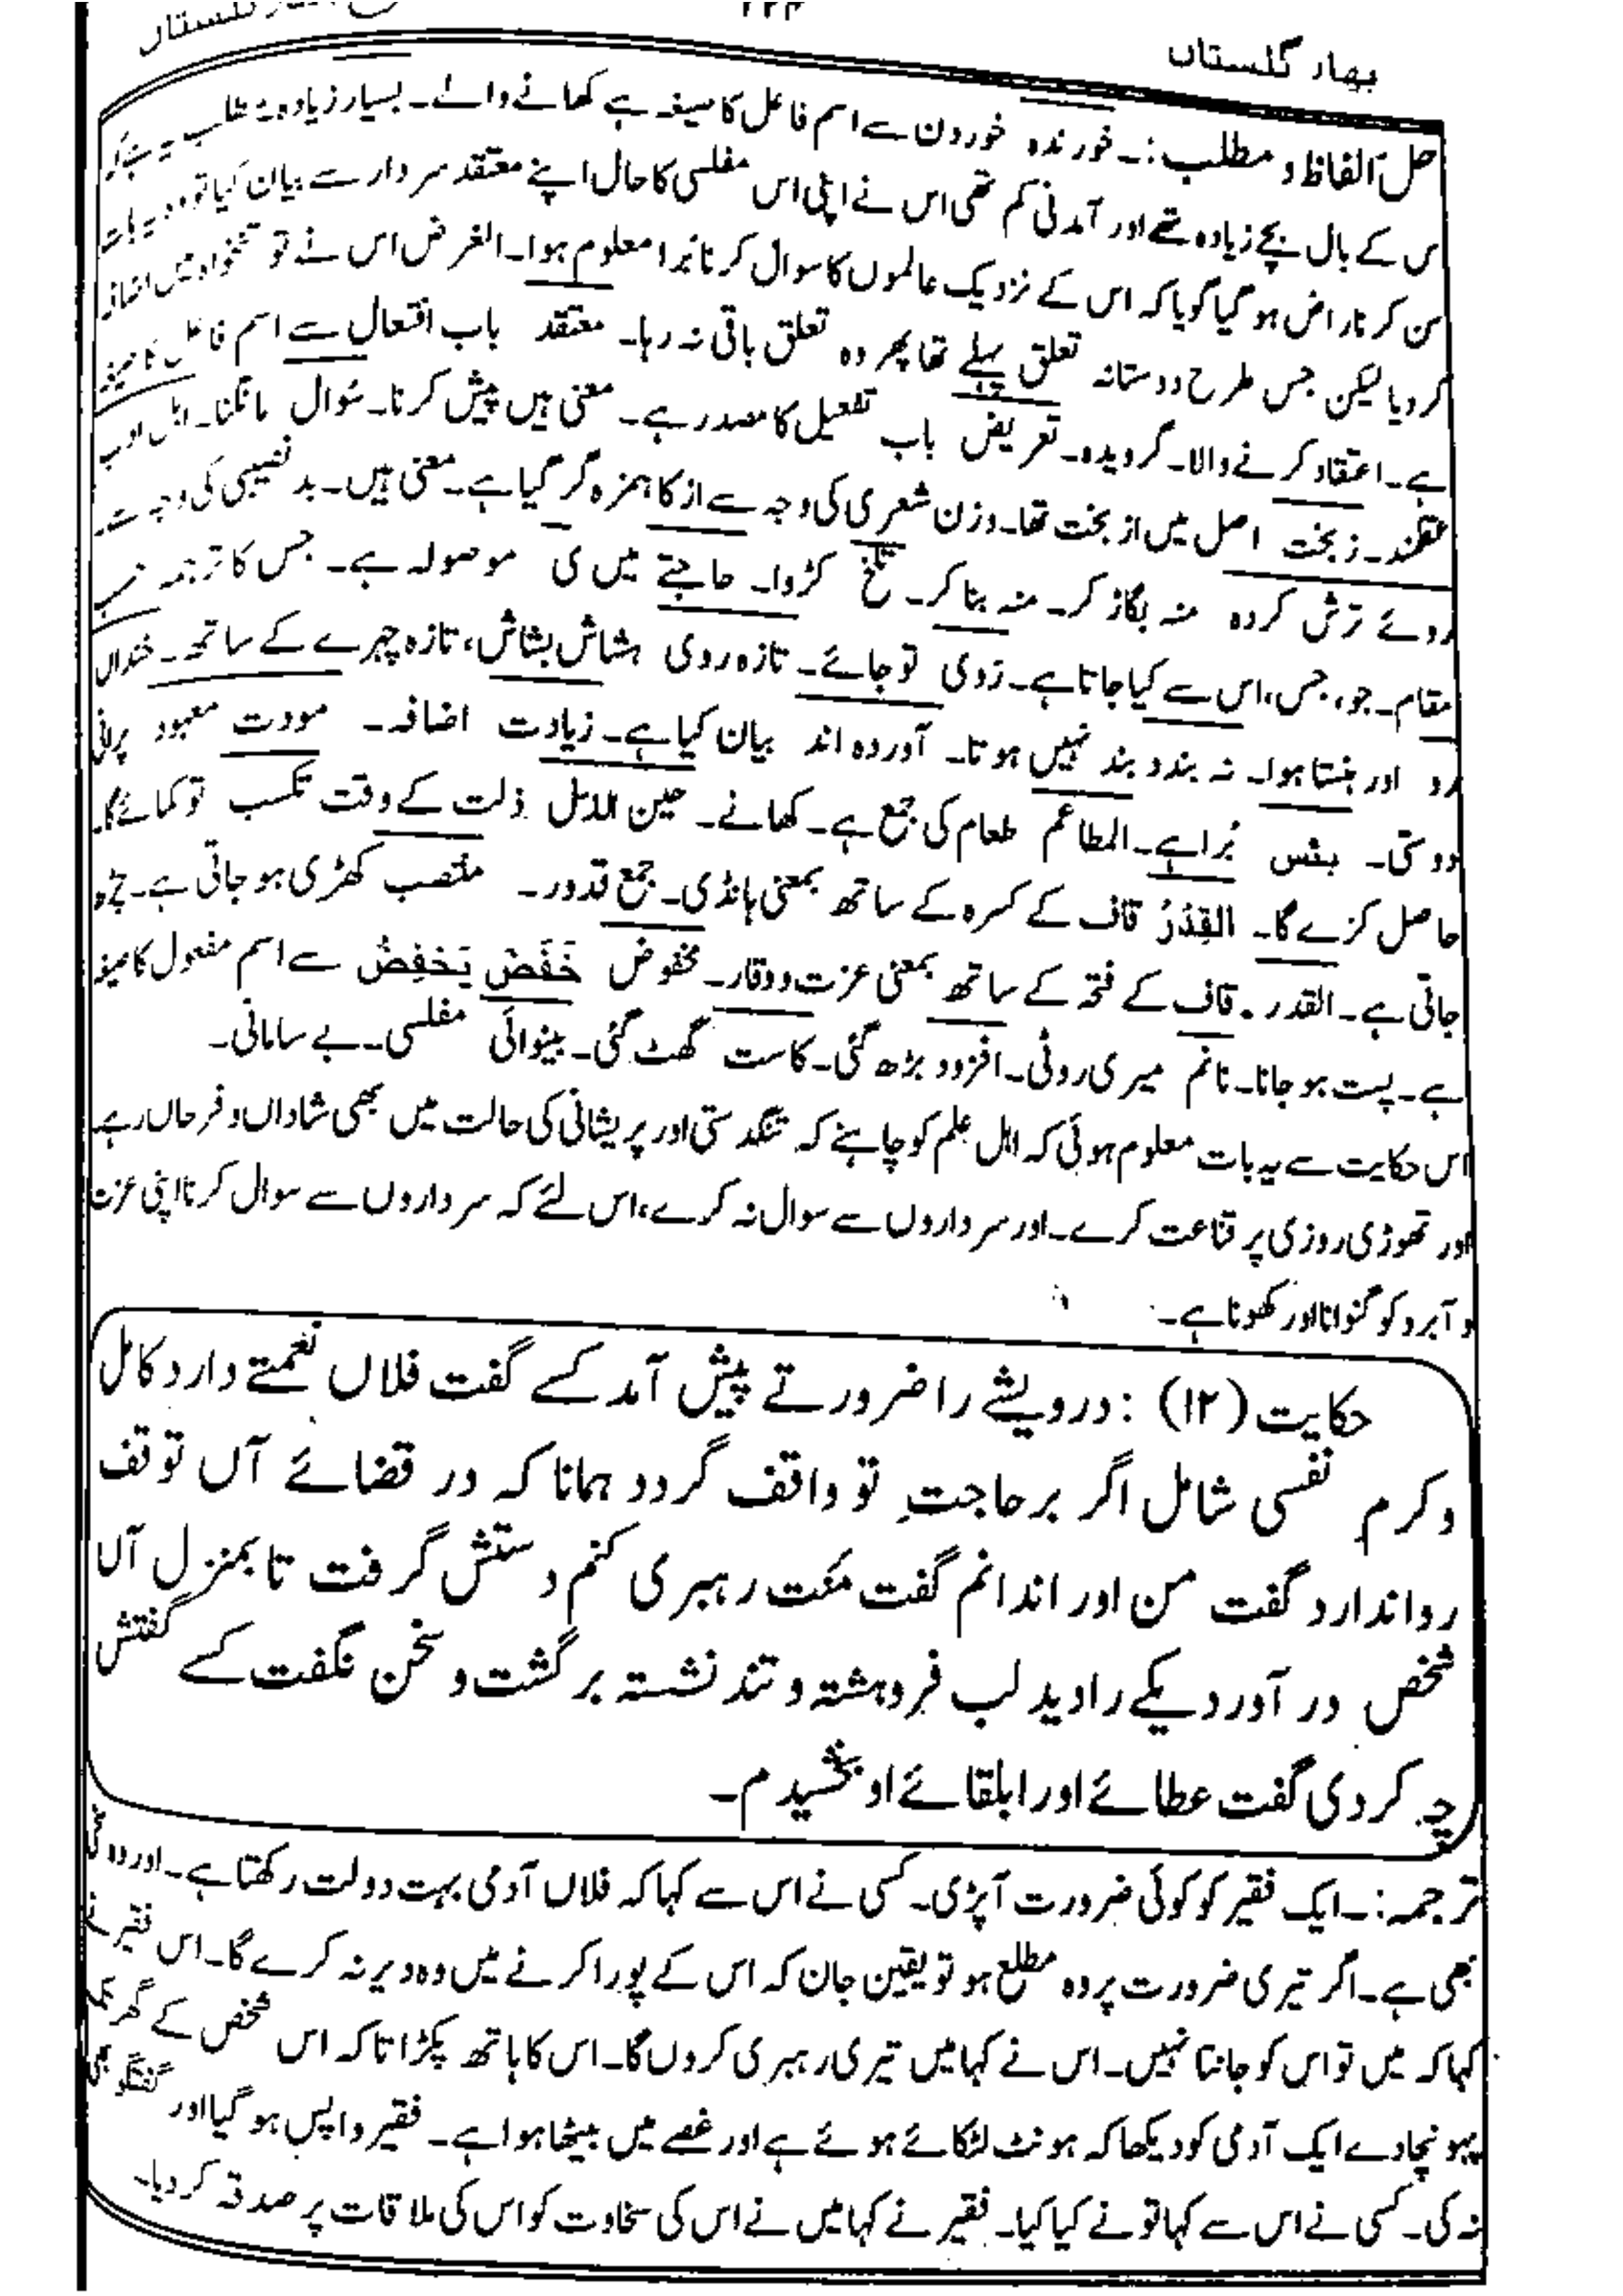 بهار گلستاں
حل الفاظ و مطلب:۔ خورندہ خوردن سے اسم فاعل کا صیغہ ہے کھانے والے۔ بسیار زیادہ مطلب یہ ہے کہ
س کے بال بچے زیادہ تھے اور آمدنی کم تھی اس نے اپنی اس مفلسی کا حال اپنے معتقد سردار سے بیان کیا تو وہ یہ بات
سن کر ناراض ہو گیا گویا کہ اس کے نزدیک عالموں کا سوال کرنا بُرا معلوم ہوا۔ الغرض اس نے تو تنخواہ میں اضافہ
کر دیا لیکن جس طرح دوستانہ تعلق پہلے تھا پھر وہ تعلق باقی نہ رہا۔ معتقد باب افتعال سے اسم فاعل کا صیغہ
ہے۔ اعتقاد کرنے والا۔ گرویدہ۔ تعریض باب تفعیل کا مصدر ہے۔ معنی ہیں پیش کرنا۔ سُوال مانگنا۔ اہل ادب
عقلمند۔ زبخت اصل میں از بخت تھا۔ وزن شعری کی وجہ سے از کا ہمزہ گر گیا ہے۔ معنی ہیں۔ بد نصیبی کی وجہ سے۔
روئے ترش کردہ منہ بگاڑ کر۔ منہ بنا کر۔ تلخ کڑوا۔ حاجتے میں ی موصولہ ہے۔ جس کا ترجمہ
مقام۔ جو، جس، اس سے کیا جاتا ہے۔ رَوی تو جائے۔ تازہ روی ہشاش بشاش، تازہ چہرے کے ساتھ۔ خنداں
رو اور ہنستا ہوا۔ نہ بندد بند نہیں ہوتا۔ آوردہ اند بیان کیا ہے۔ زیادت اضافہ۔ مودت معہود پرانی
دوستی۔ بئس بُرا ہے۔ المطاعم طعام کی جمع ہے۔ کھانے۔ حین الذل ذلت کے وقت تکسب تو کمائے گا۔
حاصل کرے گا۔ القِدْرُ قاف کے کسرہ کے ساتھ بمعنی ہانڈی۔ جمع قدور۔ منتصب کھڑی ہو جاتی ہے۔ چڑھ
جاتی ہے۔ القدر۔ قاف کے فتحہ کے ساتھ بمعنی عزت و وقار۔ مخفوض خَفَضَ یَخفِضُ سے اسم مفعول کا صیغہ
ہے۔ پست ہو جانا۔ نانم میری روٹی۔ افزود بڑھ گئی۔ کاست گھٹ گئی۔ بینوائی مفلسی۔ بے سامانی۔
اس حکایت سے یہ بات معلوم ہوئی کہ اہل علم کو چاہئے کہ تنگدستی اور پریشانی کی حالت میں بھی شاداں و فرحاں رہے
اور تھوڑی روزی پر قناعت کرے۔ اور سرداروں سے سوال نہ کرے، اس لئے کہ سرداروں سے سوال کرنا اپنی عزت
و آبرو کو گنوانا اور کھونا ہے۔
حکایت (۱۲) : درویشے را ضرورتے پیش آمد کسے گفت فلاں نعمتے دارد کامل
و کرم نفسی شامل اگر بر حاجتِ تو واقف گردد ہمانا کہ در قضائے آں توقف
روا ندارد گفت من او را ندانم گفت مَنَت رہبری کنم دستش گرفت تا بمنزل آں
شخص در آورد یکے را دید لب فروہشتہ و تند نشستہ برگشت و سخن نگفت کسے گفتش
چہ کردی گفت عطائے او را بلقائے او بخشیدم۔
ترجمہ:۔ ایک فقیر کو کوئی ضرورت آ پڑی۔ کسی نے اس سے کہا کہ فلاں آدمی بہت دولت رکھتا ہے۔ اور وہ سخی
بھی ہے۔ اگر تیری ضرورت پر وہ مطلع ہو تو یقین جان کہ اس کے پورا کرنے میں وہ دیر نہ کرے گا۔ اس فقیر نے
کہا کہ میں تو اس کو جانتا نہیں۔ اس نے کہا میں تیری رہبری کروں گا۔ اس کا ہاتھ پکڑا تا کہ اس شخص کے گھر تک
پہونچا دے ایک آدمی کو دیکھا کہ ہونٹ لٹکائے ہوئے ہے اور غصے میں بیٹھا ہوا ہے۔ فقیر واپس ہو گیا اور گفتگو بھی
نہ کی۔ کسی نے اس سے کہا تو نے کیا کیا۔ فقیر نے کہا میں نے اس کی سخاوت کو اس کی ملاقات پر صدقہ کر دیا۔